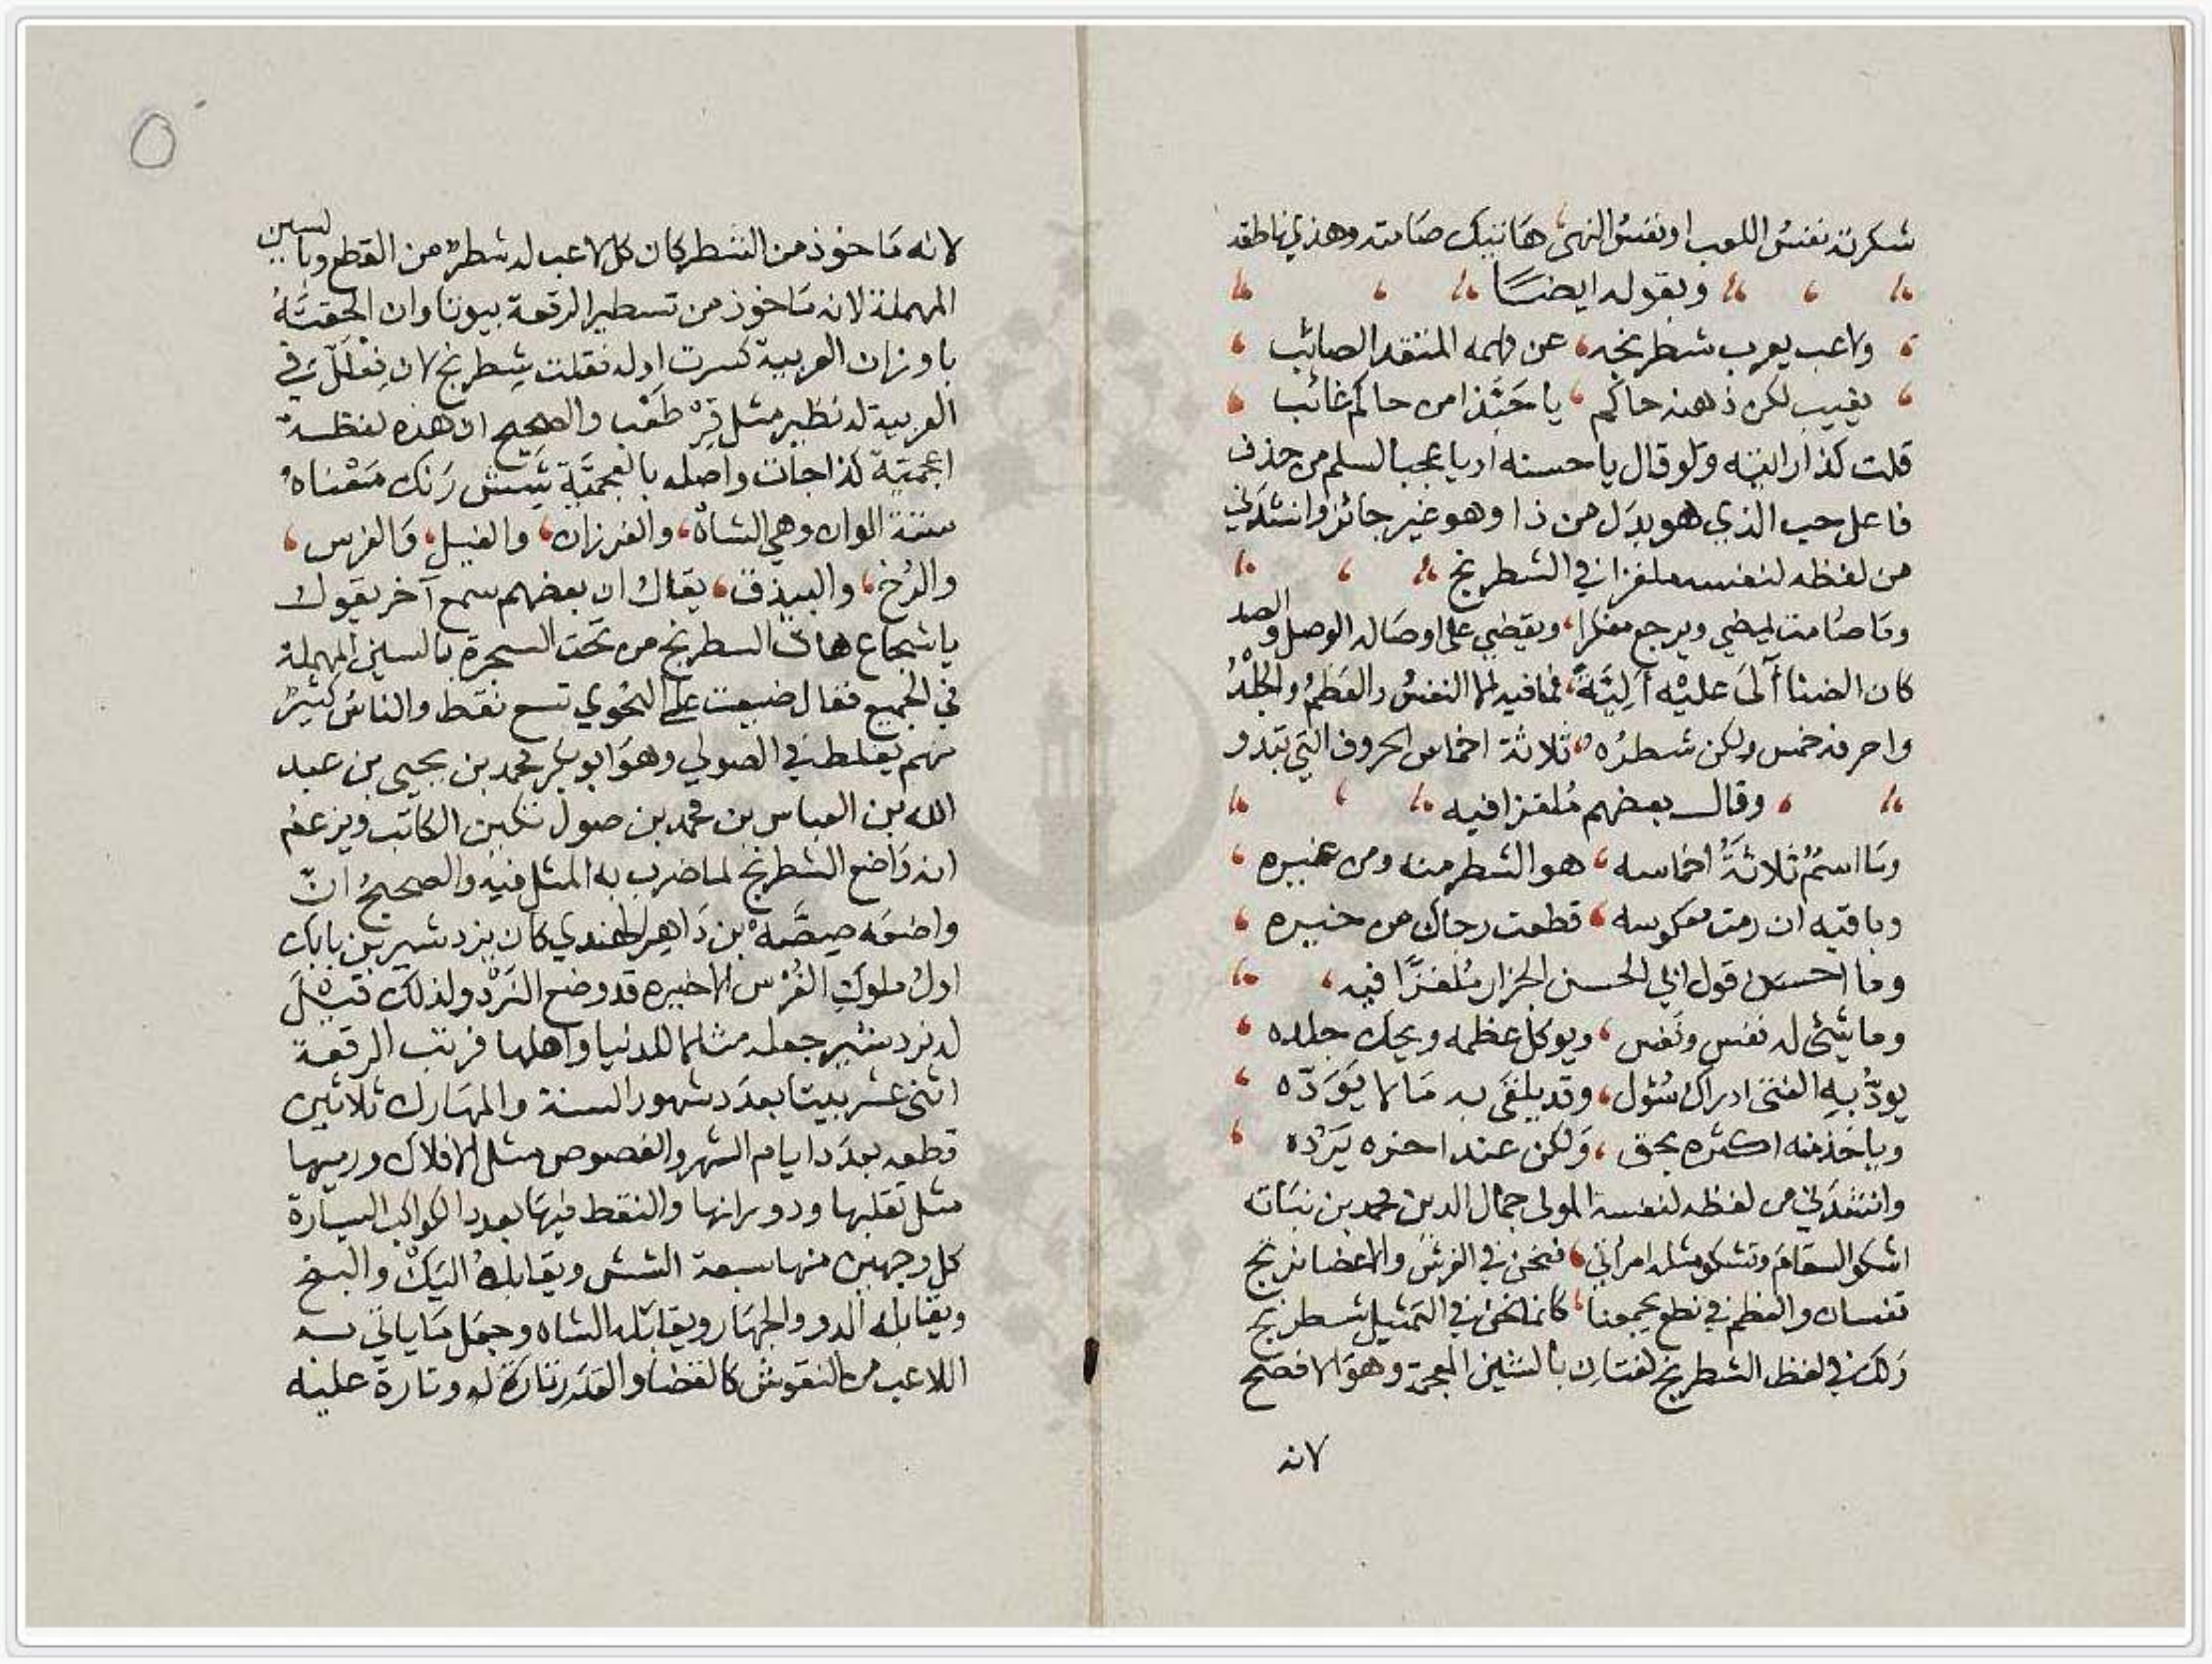 شكرته نفس اللعب او نفس النهى، هاتيك صامته وهذي ناطقه
وبقوله ايضًا
ولاعب يعرب شطرنجه، عن فهمه المتقد الصائب
يغيب لكن ذهنه حاكم، يا حبّذا من حاكم غائب
قلت كذا رايته ولو قال يا حسنه او يا عجبا لسلم من حذف
فاعل حب الذي هو بدل من ذا وهو غير جائز وانشدني
من لفظه لنفسه ملغزا في الشطرنج
وما صامت يمضي ويرجع مفكرا، ويقضي على اوصاله الوصل والصد
كان الضنا آلى عليه أليّة، فما فيه الا النفس والعظم والجلد
واحرفه خمس ولكن شطره، ثلاثة اخماس الحروف التي تبدو
وقال بعضهم ملغزا فيه
وما اسم ثلاثة اخماسه، هو الشطر منه ومن غيره
وباقيه ان رمت معكوسه، قطعت رجاك من خيره
وما احسن قول ابي الحسن الجزار ملغزًا فيه،
وما شيئ له نفس ونفس، ويوكل عظمه ويحك جلده
يودّ به الفتى ادراك سُؤل، وقد يلقى به ما لا يودّه
وياخذ منه اكثره بحق، ولكن عند اخره يرده
وانشدني من لفظه لنفسه المولى جمال الدين محمد بن نباته
اشكو السقام وتشكو مثله امرأتي، فنحن في الفرش والاعضا نرتج
نفسان والعظم في نطع يجمعنا، كانما نحن في التمثيل شطرنج
ذلك في لفظ الشطرنج لغتان بالشين المعجمة وهو الافصح
لانه
٥
لانه ماخوذ من الشطر كان كل لاعب له شطر من القطع وبالسين
المهملة لانه ماخوذ من تسطير الرقعة بيوتا وان الحقته
باوزان العربية كسرت اوله فقلت شِطرنج لان فِعْلَلّ في
العربية له نظير مثل قِرْطَعْب والصحيح ان هذه لفظة
اعجميّة كذا جات واصله بالعجميّة شَش رَنك مَعْناه
ستة الوان وهي الشاه، والفرزان، والفيل، والفرس،
والرُخ، والبيذق، يقال ان بعضهم سمع آخر يقول
يا شجاع هات السطرنج من تحت السجرة بالسين المهملة
في الجميع فقال ضيعت على النحوي تسع نقط والناس كثير
منهم يغلط في الصولي وهو ابو بكر محمد بن يحيى بن عبد
الله بن العباس بن محمد بن صول تكين الكاتب ويزعم
انه واضع الشطرنج لما ضرب به المثل فيه والصحيح انّ
واضعه صِصّه بن داهر الهندي كان يزدشير بن بابك
اول ملوك الفُرْس الاخيره قد وضع النَرْد ولذلك قيل
له نردشير جعله مثالا للدنيا واهلها فرتب الرقعة
اثنى عشر بيتا بعدد شهور السنة والمهارك ثلاثين
قطعه بعدد ايام الشهر والفصوص مثل الافلاك ورميها
مثل تقلبها ودورانها والنقط فيها بعدد الكواكب السيارة
كل وجهين منها سبعة الشش ويقابله اليك والبنج
ويقابله الدو والجهار ويقابله الساه وجعل ما ياتي به
اللاعب من النقوش كالقضا والقدر تارة له وتارة عليه